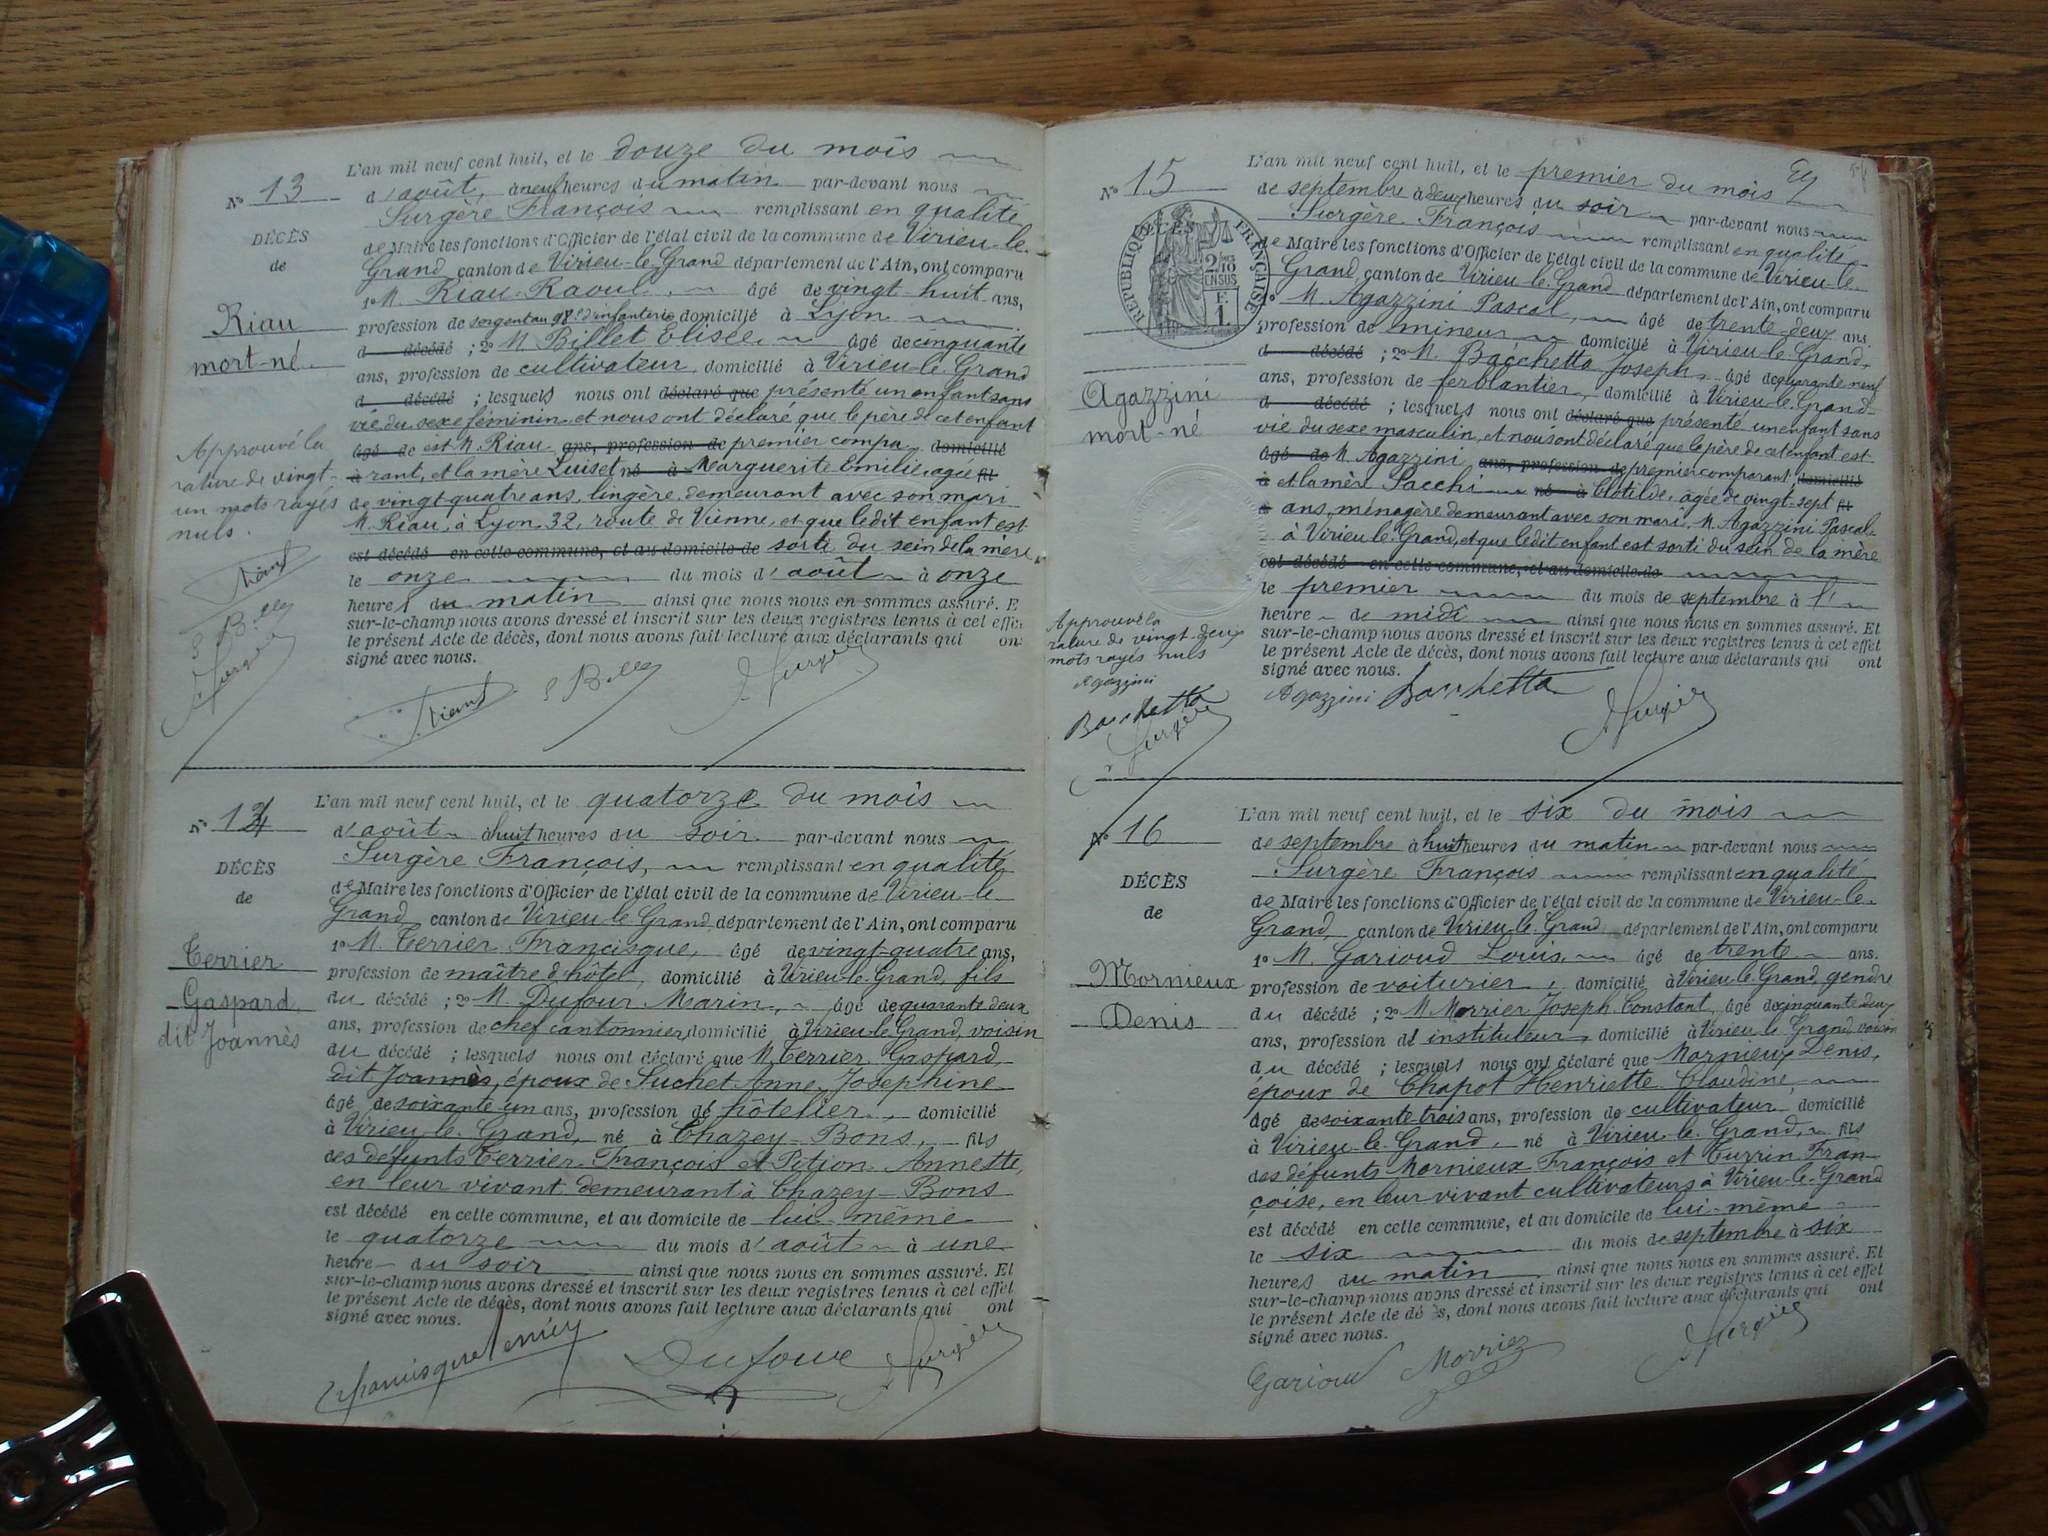 N° 13
DÉCÈS
de
Riau
mort-né
Approuvé la
rature de vingt-
un mots rayés
nuls.
L'an mil neuf cent huit, et le douze du mois
d'août, à neuf heures du matin par-devant nous
Surgère François remplissant en qualité
de Maire les fonctions d'Officier de l'état civil de la commune de Virieu-le-
Grand canton de Virieu-le-Grand département de l'Ain, ont comparu
1° M. Riau Raoul, âgé de vingt-huit ans,
profession de sergent au 98e d'infanterie domicilié à Lyon
d décédé ; 2° M. Billet Elisée, âgé de cinquante
ans, profession de cultivateur domicilié à Virieu-le-Grand
d décédé ; lesquels nous ont déclaré que présenté un enfant sans
vie du sexe féminin et nous ont déclaré que le père de cet enfant
âgé de est M. Riau ans, profession de premier compa domicilié
à rant, et la mère Luiset né à Marguerite Emilie, agée fil
de vingt-quatre ans, lingère, demeurant avec son mari
M. Riau, à Lyon 32, route de Vienne, et que ledit enfant est
est décédé en cette commune, et au domicile de sorti du sein de la mère
le onze du mois d'août à onze
heures du matin ainsi que nous nous en sommes assuré. E
sur-le-champ nous avons dressé et inscrit sur les deux registres tenus à cet effe
le présent Acte de décès, dont nous avons fait lecture aux déclarants qui on
signé avec nous.
Surgère
N° 14
DÉCÈS
de
Terrier
Gaspard
dit Joannès
L'an mil neuf cent huit, et le quatorze du mois
d'août à huit heures du soir par-devant nous
Surgère François, remplissant en qualité
de Maire les fonctions d'Officier de l'état civil de la commune de Virieu-le-
Grand canton de Virieu-le-Grand département de l'Ain, ont comparu
1° M. Terrier Francisque, âgé de vingt-quatre ans,
profession de maître d'hôtel, domicilié à Virieu-le-Grand, fils
du décédé ; 2° M. Dufour Marin, âgé de quarante-deux
ans, profession de chef cantonnier, domicilié à Virieu-le-Grand, voisin
du décédé ; lesquels nous ont déclaré que M. Terrier Gaspard,
dit Joannès, époux de Suchet Anne, Josephine
âgé de soixante un ans, profession de hôtelier, domicilié
à Virieu-le-Grand, né à Chazey-Bons, fils
des défunts Terrier François et Pition Annette,
en leur vivant demeurant à Chazey-Bons
est décédé en cette commune, et au domicile de lui-même
le quatorze du mois d'août à une
heure du soir ainsi que nous nous en sommes assuré. Et
sur-le-champ nous avons dressé et inscrit sur les deux registres tenus à cet effet
le présent Acte de décès, dont nous avons fait lecture aux déclarants qui ont
signé avec nous.
Francisque Terrier Dufour Surgère
N° 15
DÉCÈS
RÉPUBLIQUE FRANÇAISE
2/10 EN SUS
F. 1.
Agazzini
mort-né
Approuvé la
rature de vingt-deux
mots rayés nuls
Agazzini
Bacchetta
Surgère
L'an mil neuf cent huit, et le premier du mois
de septembre à deux heures du soir par-devant nous
Surgère François remplissant en qualité
de Maire les fonctions d'Officier de l'état civil de la commune de Virieu-le-
Grand canton de Virieu-le-Grand département de l'Ain, ont comparu
1° M. Agazzini Pascal, âgé de trente-deux ans.
profession de mineur domicilié à Virieu-le-Grand,
d décédé ; 2° M. Bacchetta Joseph, âgé de quarante-neuf
ans, profession de ferblantier, domicilié à Virieu-le-Grand
d décédé ; lesquels nous ont déclaré que présenté un enfant sans
vie du sexe masculin, et nous ont déclaré que le père de cet enfant est
âgé de M. Agazzini ans, profession de premier comparant, domicilié
à et la mère Sacchi né à Clotilde, agée de vingt-sept fil
ans, ménagère demeurant avec son mari M. Agazzini Pascal
à Virieu-le-Grand, et que ledit enfant est sorti du sein de la mère
est décédé en cette commune, et au domicile de
le premier du mois de septembre à l'
heure de midi ainsi que nous nous en sommes assuré. Et
sur-le-champ nous avons dressé et inscrit sur les deux registres tenus à cet effet
le présent Acte de décès, dont nous avons fait lecture aux déclarants qui ont
signé avec nous.
Agazzini Bacchetta Surgère
N° 16
DÉCÈS
de
Mornieux
Denis
L'an mil neuf cent huit, et le six du mois
de septembre à huit heures du matin par-devant nous
Surgère François remplissant en qualité
de Maire les fonctions d'Officier de l'état civil de la commune de Virieu-le-
Grand, canton de Virieu-le-Grand département de l'Ain, ont comparu
1° M. Garioud Louis, âgé de trente ans.
profession de voiturier, domicilié à Virieu-le-Grand, gendre
du décédé ; 2° M. Morrier Joseph Constant, âgé de cinquante-deux
ans, profession d' instituteur, domicilié à Virieu-le-Grand voisin
du décédé ; lesquels nous ont déclaré que Mornieux Denis,
époux de Chapot Henriette Claudine,
âgé de soixante trois ans, profession de cultivateur domicilié
à Virieu-le-Grand, né à Virieu-le-Grand, fils
des défunts Mornieux François et Currin Fran-
çoise, en leur vivant cultivateurs à Virieu-le-Grand
est décédé en cette commune, et au domicile de lui-même
le six du mois de septembre à six
heures du matin ainsi que nous nous en sommes assuré. Et
sur-le-champ nous avons dressé et inscrit sur les deux registres tenus à cet effet
le présent Acte de décès, dont nous avons fait lecture aux déclarants qui ont
signé avec nous.
Garioud Morrier Surgère